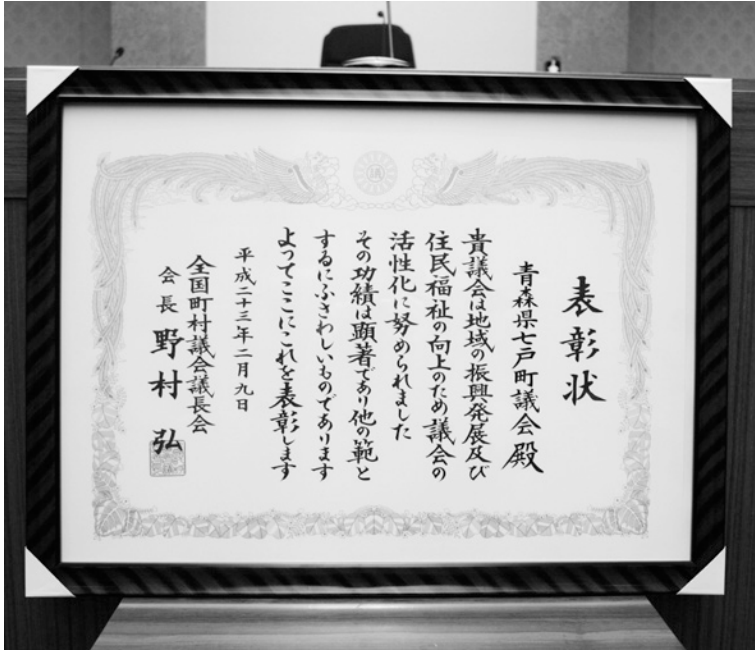 表彰状
青森県七戸町議会殿
貴議会は地域の振興発展及び
住民福祉の向上のため議会の
活性化に努められました
その功績は顕著であり他の範と
するにふさわしいものであります
よってここにこれを表彰します
平成二十三年二月九日
全国町村議会議長会
会長 野村弘